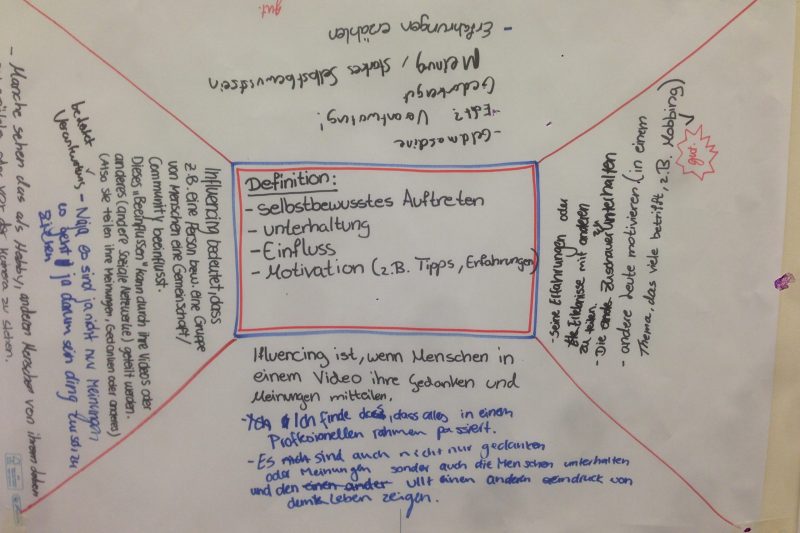 Definition:
- selbstbewusstes Auftreten
- unterhaltung
- Einfluss
- Motivation (z.B. Tipps, Erfahrungen)
Ifluencing ist, wenn Menschen in
einem Video ihre Gedanken und
Meinungen mitteilen.
Ich finde dass, dass alles in einem
Proffesionellen rahmen passiert.
- Es sind auch nicht nur gedanken
oder Meinungen sonder auch die Menschen unterhalten
und den einen ander ullt einen andern eindruck von
Leben zeigen.
Influencing bedeutet, dass
z.B. eine Person bzw. eine Gruppe
von Menschen eine Gemeinschaft/
Community beeinflusst.
Dieses "Beeinflussen" kann durch ihre Videos oder
anderes (andere soziale Netzwerke) geteilt werden.
(Also sie teilen ihre Meinungen, Gedanken oder anderes)
bedeutet
Verantwortung
- Nein es sind ja nicht nur Meinungen
es geht ja darum sein ding
ziehen
- Manche sehen das als Hobby, anderen Menschen von ihrem Leben
oder vor der Kamera zu stehen.
- Geldmaschine
- Echt? Verantwortung!
Gedankengut
Meinung, starkes Selbstbewusstsein
- Erfahrungen erzählen
gut.
- Seine Erfahrungen oder
Erlebnisse mit anderen
zu teilen.
- Die Zuschauer zu unterhalten
- andere leute motivieren (in einem
Thema, das viele betrifft, z.B. Mobbing)
gut.